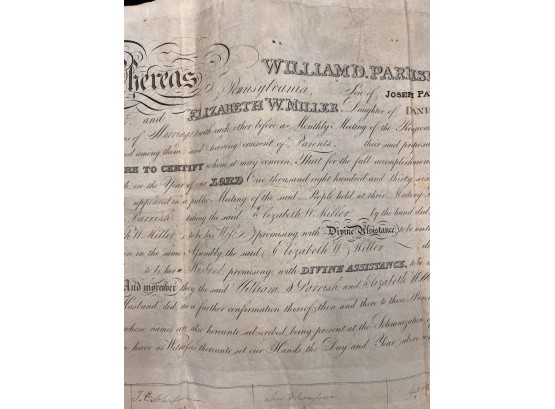 Whereas WILLIAM D. PARRISH
Pennsylvania, Son of JOSEPH PA
and ELIZABETH W. MILLER Daughter of DANI
of Marriage with each other before a Monthly Meeting of the Religiou
d among them and having consent of Parents, their said proposa
RE TO CERTIFY whom it may concern, That for the full accomplishmen
in the Year of our LORD One thousand eight hundred and thirty six
appeared in a public Meeting of the said People held at their Meeting
Parrish taking the said Elizabeth W. Miller by the hand, did
th W. Miller to be his Wife, promising with Divine Assistance to be unto
in the same Assembly, the said Elizabeth W Miller di
to be her Husband, promising, with DIVINE ASSISTANCE, to be
And moreover they the said William D Parrish and Elizabeth W Mill
Husband, did, as a further confirmation thereof, then and there to these Pres
whose names are also hereunto subscribed, being present at the Solemnization of
have as Witnesses thereunto set our Hands the Day and Year above wri